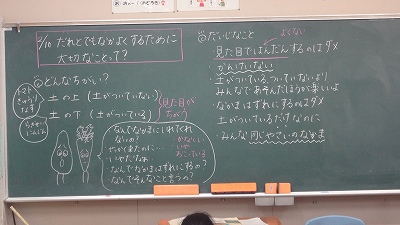 2/10 だれとでもなかよくするために
大切なことって?
どんなちがい?
トマト
きゅうり
なす
土の上(土がついていない)
土の下(土がついている)
見た目が
ちがう
にんじん
なんでなかまにいれてくれ
ないの?
かなしい
いや
おこっている
いやだなぁ
なんでなかまはずれにするの?
なんでそんなこと言うの?
だいじなこと
よくない
見た目ではんだんするのはダメ
かんけいない
土がついている、ついていないより
みんなであそんだほうが楽しいよ
なかまはずれにするのはダメ
土がついているだけなのに
みんな同じやさいのなかま